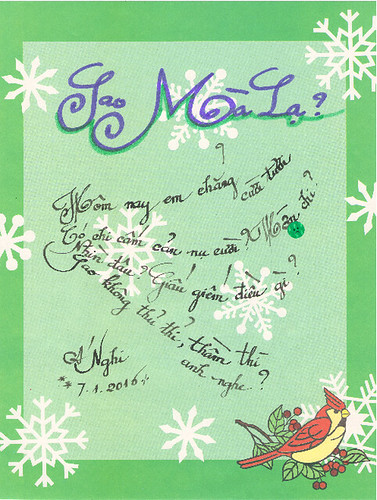 Sao Mà Lạ?
Hôm nay em chẳng cười tươi?
Có chi cấm cản nụ cười? Môn chi?
Nhìn đâu? Giấu giếm điều gì?
Sao không thủ thỉ, thầm thì anh nghe?
Á Nghi
** 7.1.2016 *